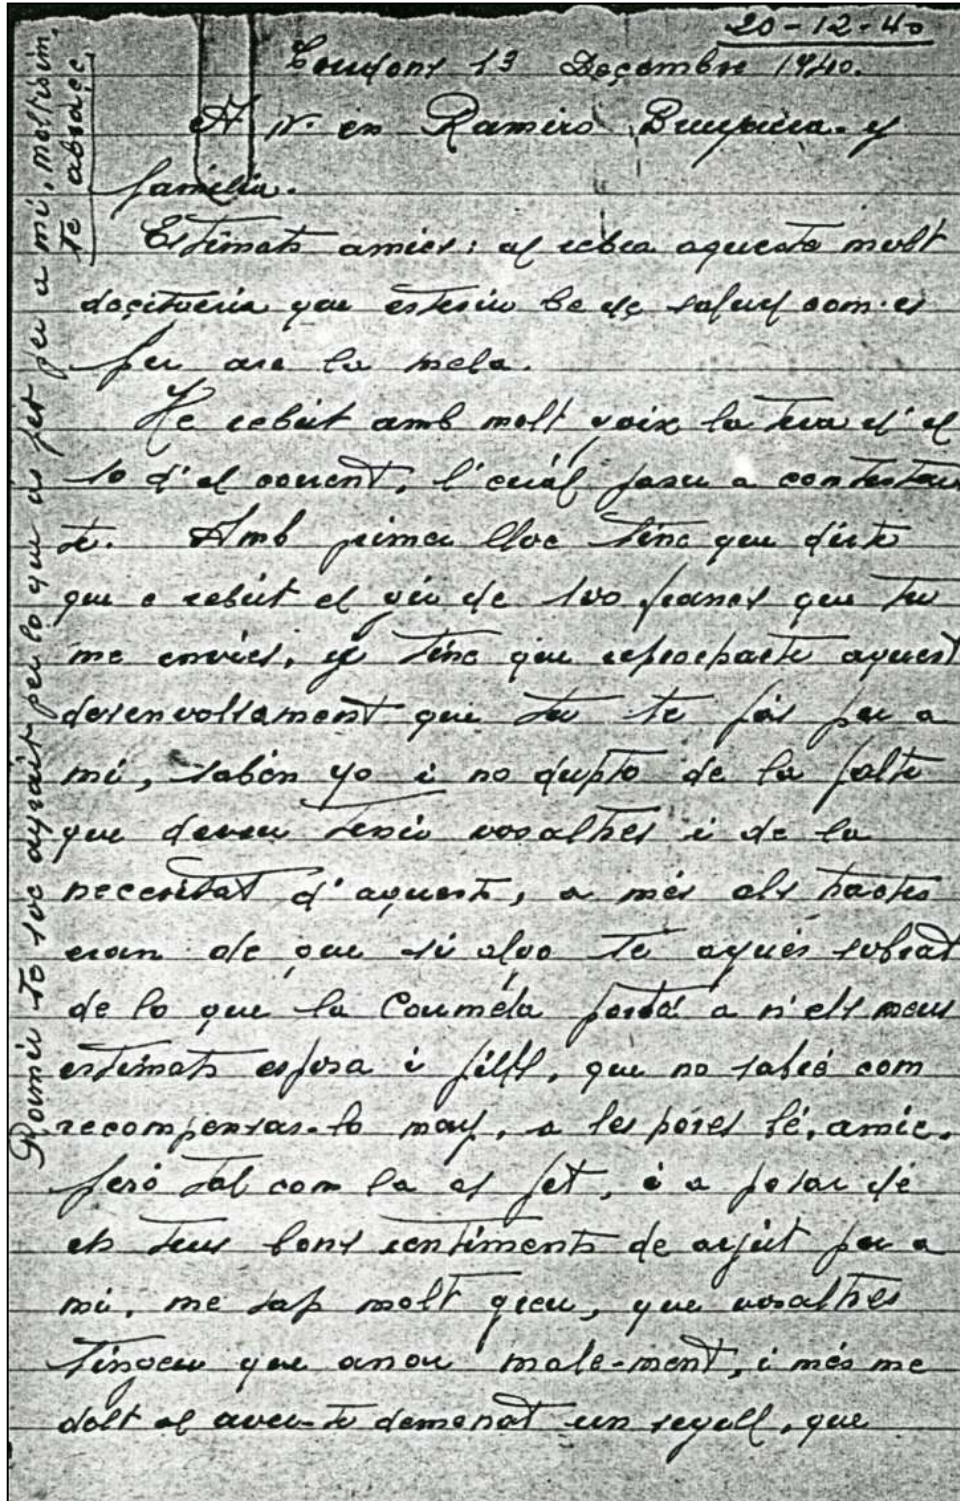 20-12-40
13 Deçembre 1940.
A n' en Ramiro y
família.
Estimats amics: al rebra aquesta molt
desitueria que estesiu be de salut com es
per ara la meba.
He rebut amb molt goix la teva d'el
10 d'el corrent, l'cuál pasu a contestar
te. Amb primer lloc tinc que dirte
que e rebut el giru de 100 francs que tu
me envies, y tinc que reprocharte aquest
desenvolsament que tu te fas per a
mi, sabén yo i no dupto de la falta
que deveu tenir vosaltres i de la
necesitat d'aquests, a més als tractes
eran de que si algo te agués sobrat
de lo que la Couméla portá a n'els meus
estimats esposa i fills, que no sabré com
recompensar-lo may, a les hores bé, amic.
però tal com la as fet, i a pesar de
els teus bons sentiments de ajut per a
mi, me sap molt greu, que vosaltres
tingeu que anar male-ment, i més me
dolt al aver-te demanat un segell, que
Ramir to soc agrait per lo que as fet per a mi, moltisim.
te abraçc